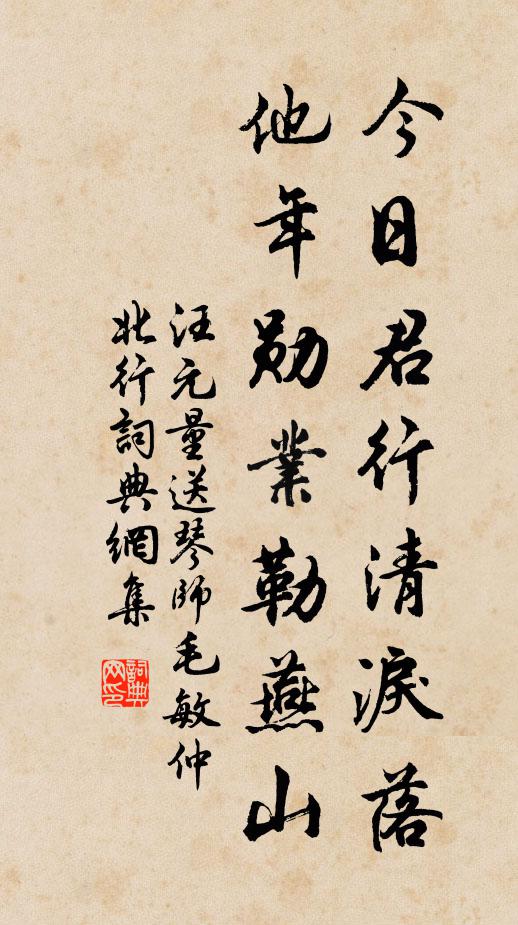 今日君行清淚落
他年勛業勒燕山
汪元量送琴師毛敏仲
北行詞典網集
詞典
网印